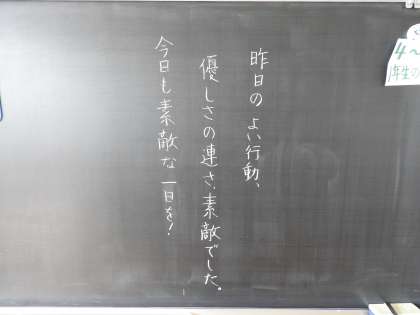 昨日のよい行動、
優しさの連さ、素敵でした。
今日も素敵な一日を！
4〜
1年生の